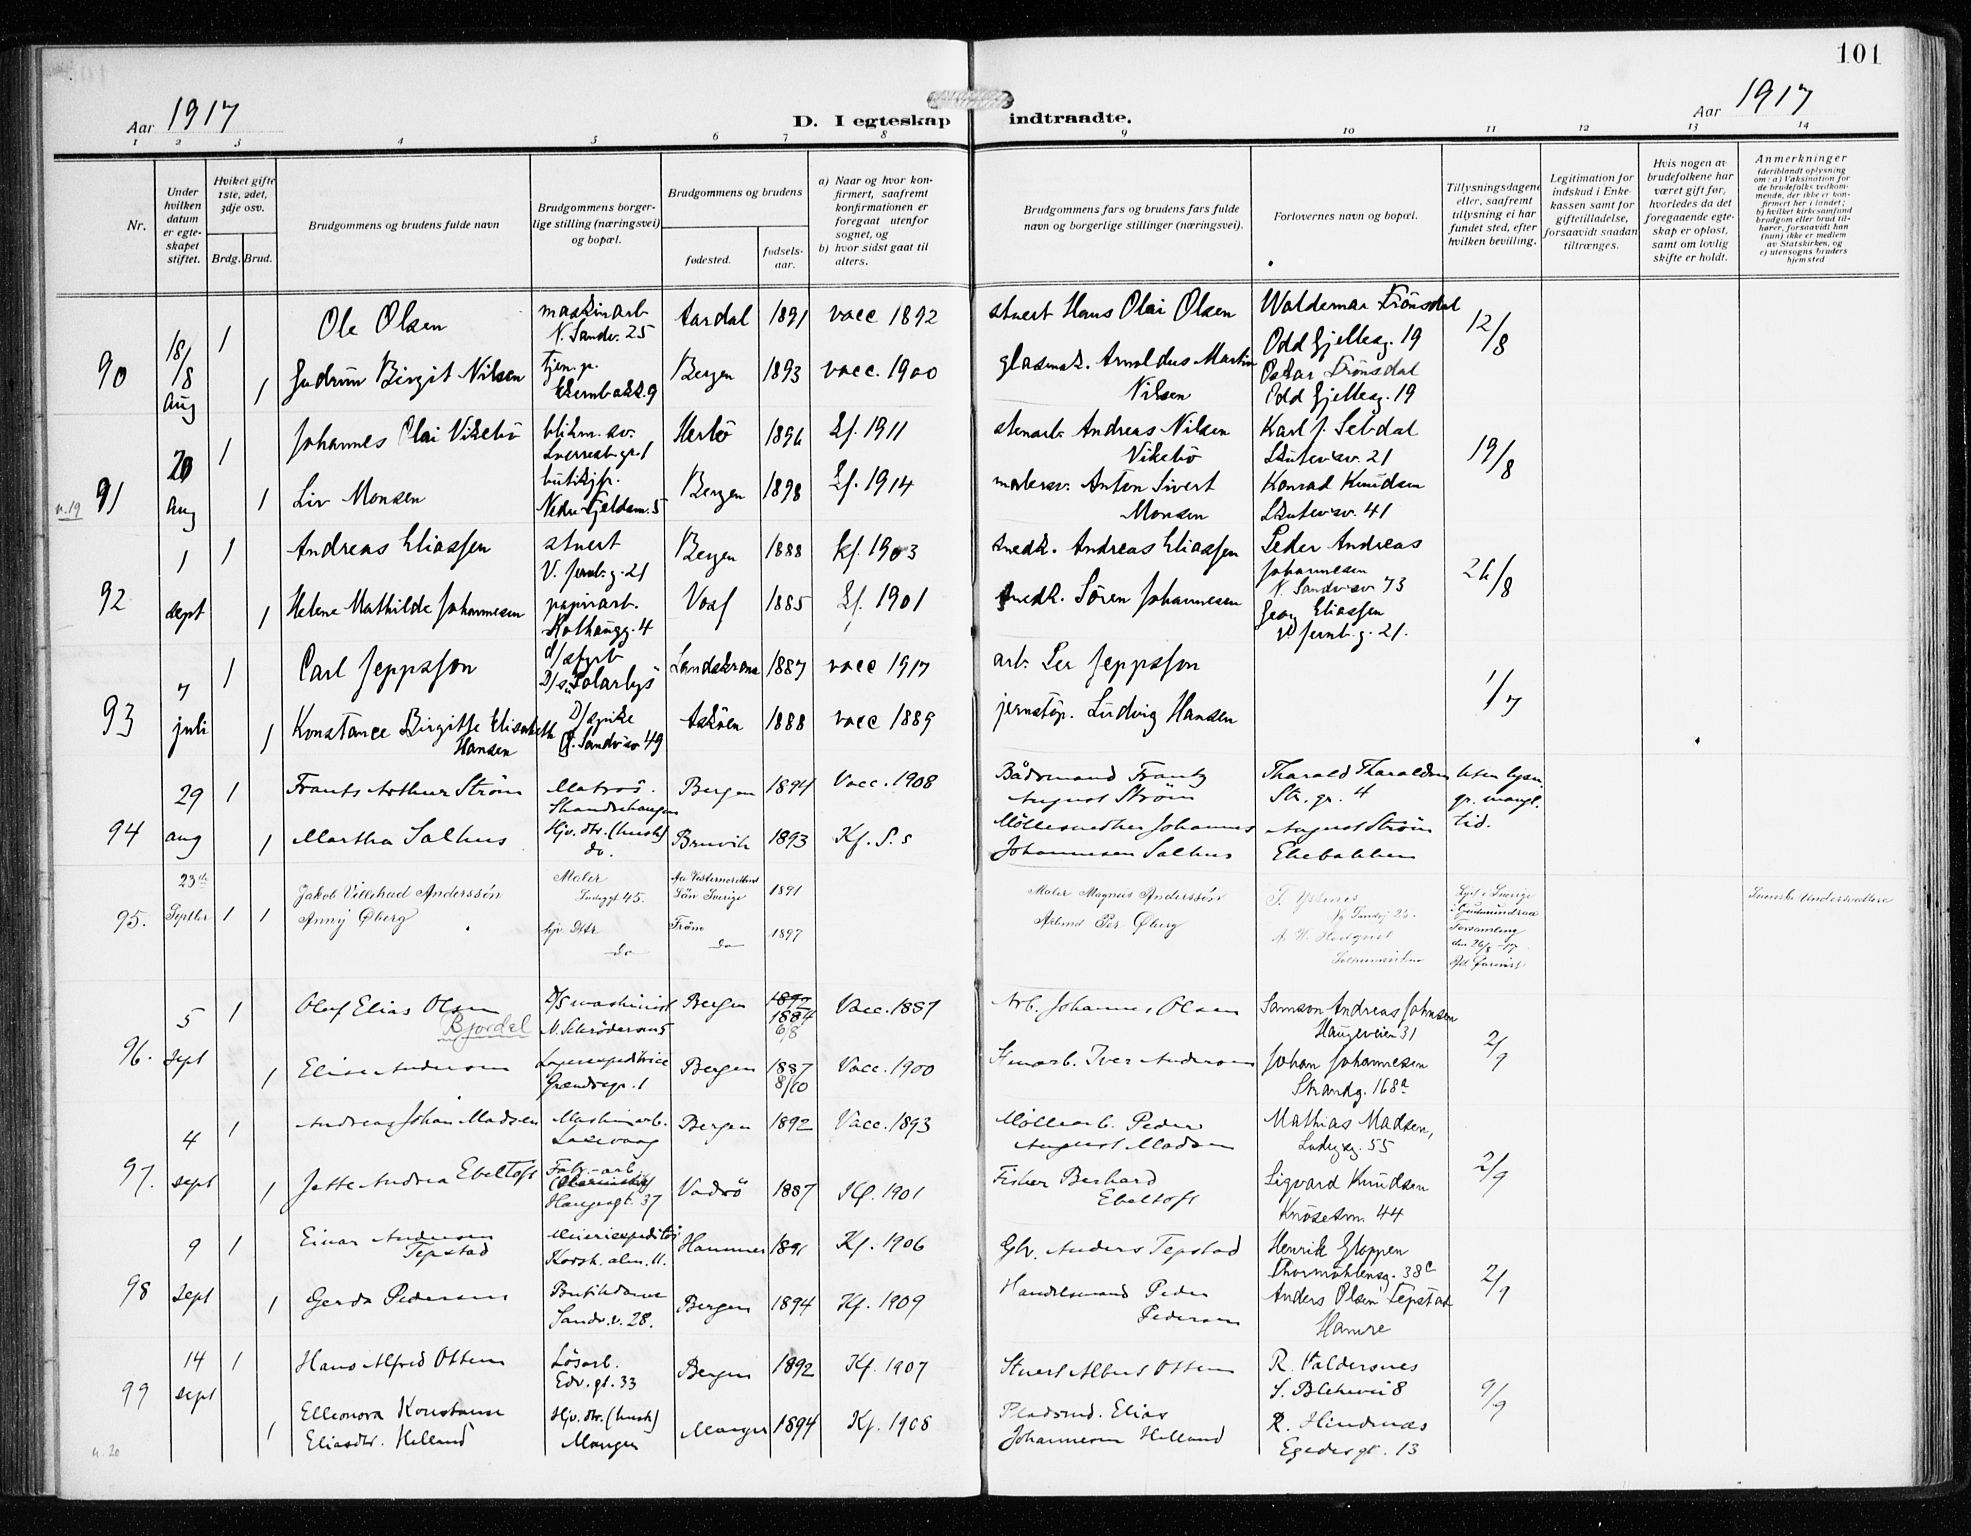 101
Aar 1917
D. I egteskap indtraadte.
Aar 1917
1 2 3 4 5 6 7 8 9 10 11 12 13 14
Nr.
Under hvilken datum er egteskapet stiftet.
Hviket gifte 1ste, 2det, 3dje osv.
Brdg. Brud.
Brudgommens og brudens fulde navn
Brudgommens borgerlige stilling (næringsvei) og bopæl.
Brudgommens og brudens
fødested.
fødselsaar.
a) Naar og hvor konfirmert, saafremt konfirmationen er foregaat utenfor sognet, og
b) hvor sidst gaat til alters.
Brudgommens fars og brudens fars fulde navn og borgerlige stillinger (næringsvei).
Forlovernes navn og bopæl.
Tillysningsdagene eller, saafremt tillysning ei har fundet sted, efter hvilken bevilling.
Legitimation for indskud i Enkekassen samt for giftetilladelse, forsaavidt saadan tiltrænges.
Hvis nogen av brudefolkene har været gift før, hvorledes da det foregaaende egteskap er opløst, samt om lovlig skifte er holdt.
Anmerkninger (deriblandt oplysning om: a) Vaksination for de brudefolks vedkommende, der ikke er konfirmert her i landet; b) hvilket kirkesamfund brudgom eller brud tilhører, forsaavidt han (hun) ikke er medlem av Statskirken, og c) utensogns bruders hjemsted
90 18/8 Aug 1 Ole Olsen maskinarb N. Sandv. 25 Aardal 1891 vacc 1892 stuert Hans Olai Olsen Waldemar Frønsdal Odd Gjellesg. 19 12/8
1 Gudrun Birgit Nilsen Tjen.p. 9 Bergen 1893 vacc. 1900 glasmak. Arnoldus Martin Nilsen Oskar Frønsdal Odd Gjellesg. 19
91 20 Aug 1 Johannes Olai Vikebø blikm. sv. Herlø 1896 kf. 1911 stenarb. Andreas Nilsen Vikebø Karl J. Sebdal Skutevsv. 21 19/8
n. 19
1 Liv Monsen butikjfr. Nedre Fjeldsm. 5 Bergen 1898 kf. 1914 malersv. Anton Sivert Monsen Konrad Knudsen Skutevsv. 41
92 1 sept 1 Andreas Eliassen stuert V. Jernb. g. 21 Bergen 1888 kf. 1903 snedk. Andreas Eliassen Peder Andreas Johannesen N. Sandvsv 73 26/8
1 Helene Mathilde Johannesen papirarb. Kothaugg. 4 Voss 1885 kf. 1901 snedk. Sören Johannesen Georg Eliassen V. Jernb. g. 21.
93 7 juli 1 Carl Jeppsson d/s fyrb D/s "Solarlys Landskrona 1887 vacc 1917 arb. Per Jeppsson 1/7
1 Konstance Birgitte Elisabeth Hansen Sandvsv 49 Askøen 1888 vacc 1889 jernstøp. Ludvig Hansen
94 29 aug 1 Frants Arthur Strøm Matros. Skandsehaugen Bergen 1894 Vacc. 1908 Bådsmand Frantz August Strøm Tharald Tharaldsen Str. gr. 4 Uten lysn. gr. mangl. tid.
1 Martha Salhus Hjv. dtr. (husb) do. Bruvik 1893 Kf. S. s Møllesnedker Johannes Johannesen Salhus August Strøm Ekebakken
95. 23de Septbr 1 1 Jakob Villehad Anderssön Maler Ladegt 45. Län Sverige 1891 Maler Magnus Anderssön T. Ystenes N. Sandvg 26. Lyst i Sverige i Gudmundraa Forsamling den 26/8 -17 Svenske Undersaatter
Anny Öberg hjv. Dttr do Frön do 1897 Per Öberg A. W. Hedqvist
96. 5 sept 1 Oluf Elias Olsen Bjordal D/S maskinist N. Schrøderm 5 Bergen 1892 1884 6/8 Vacc. 1887 Arb. Johannes Olsen Samson Andreas Johnsen Haugeveien 31 2/9
1 Elise Andersen Lagerexpeditrice Grændsegr. 1 Bergen 1887 8/10 Vacc. 1900 Stenarb. Iver Andersen Johan Johannesen Strandg. 168a
97. 4 sept 1 Andreas Johan Madsen Maskinarb. Laxevaag Bergen 1892 Vacc. 1893 Møllearb. Peder August Madsen Mathias Madsen, Ladegsg. 55 2/9
1 Jette Andrea Ebeltoft Fabr.-arb. Haugegt. 37 Vadsö 1887 Kf. 1901 Fisker Berhard Ebeltoft Sigvard Knudsen Knøsesm. 44
98 9 sept 1 Einar Andersen Tepstad Meieriexpeditør Korsk. alm. 11. Hammer 1891 Kf. 1906 Gbr. Anders Tepstad Henrik Gloppen Thormøhlensg. 38c 2/9
1 Gerda Pedersen Butikdame Sandv. v. 28. Bergen 1894 Kf. 1909 Handelsmand Peder Pedersen Anders Olsen Tepstad Hamre
99 14 sept 1 Hans Alfred Ottesen Løsarb. Edv. gt. 33 Bergen 1892 Kf. 1907 Stuert Albert Ottesen R. Valdersnes S. Blekevei 8 9/9
1 Elleonora Konstanse Eliasdtr. Helland Hjv. dtr. (husb) Manger Manger 1894 Kf. 1908 Pladsmd. Elias Johannesen Helland R. Hindenæs Egedesgt. 13
n. 20